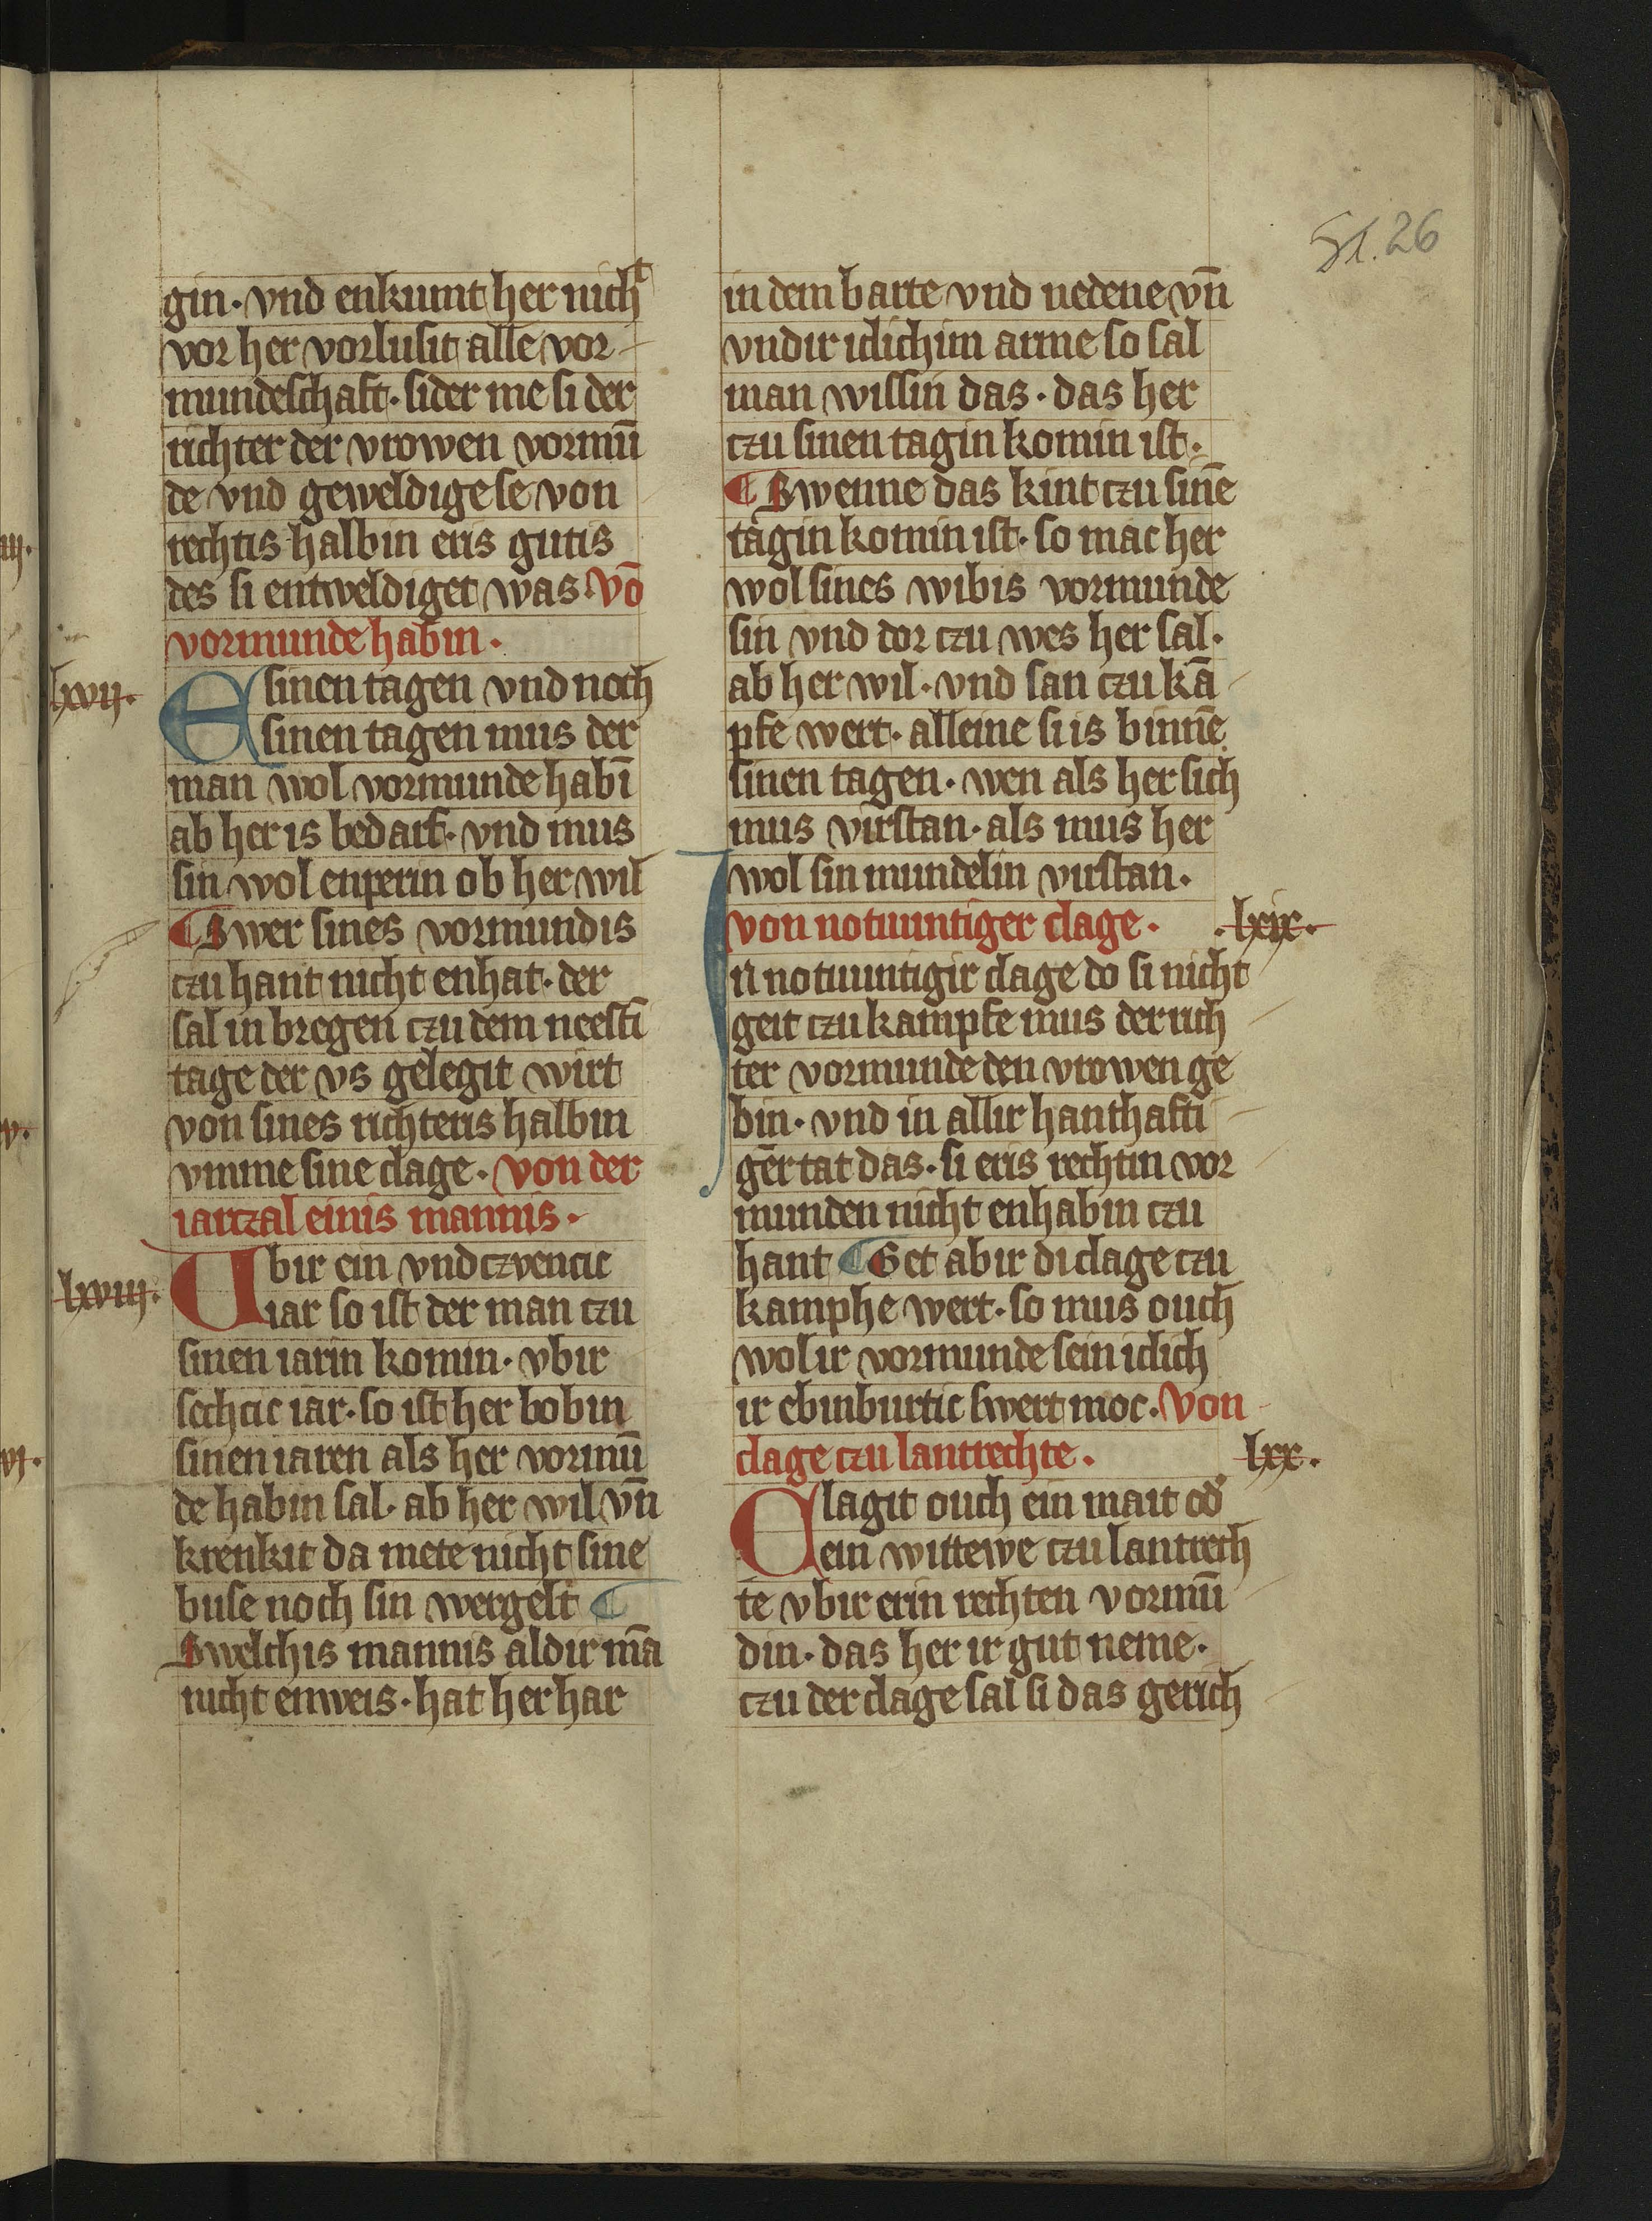 Bl. 26
gin· vnd enkumt her nicht
vor her vorlusit alle vor
mundeschaft· sider me si der
richter der vrowen vormū
de vnd geweldige se von
rechtis halbin eris gutis
des si entweldiget was· vō
vormunde habin·
lxvij·
E sinen tagen vnd noch
sinen tagen mus der
man wol vormunde habī
ab her is bedarf· vnd mus
sin wol enperin ob her wil
¶ Swer sines vormundis
czu hant nicht enhat· der
sal in bregen czu dem neestī
tage der vs gelegit wirt
von sines richteris halbin
vmme sine clage· von der
iarczal einis mannis·
lxviij·
Vbir ein vnd czvencic
iar so ist der man czu
sinen iarin komin· vbir
sechcic iar· so ist her bobin
sinen iaren als her vormū
de habin sal· ab her wil vn̄
krenkit da mete nicht sine
buse noch sin wergelt ¶
Swelchis mannis aldir mā
nicht enweis· hat her har
in dem barte vnd nedene vn̄
vndir iclichim arme so sal
man wissin das· das her
czu sinen tagin komin ist·
¶ Swenne das kint czu sinē
tagin komin ist· so mac her
wol sines wibis vormunde
sin vnd dor czu wes her sal·
ab her wil· vnd san czu kā
pfe wert· alleine si is binnē
sinen tagen· wen als her sich
mus virstan· als mus her
wol sin mundelin virstan·
von notuuntiger clage· ·lxix·
In notuuntigir clage do si nicht
geit czu kampfe mus der rich
ter vormunde den vrowen ge
bin· vnd in allir hanthafti
ger tat das· si eris rechtin vor
munden nicht enhabin czu
hant ¶ Get abir di clage czu
kamphe wert· so mus ouch
wol ir vormunde sein iclich
ir ebinburtic swert moc· von
clage czu lantrechte· lxx·
Clagit ouch ein mait od'
ein wittewe czu lantrech
te vbir erin rechten vormū
din· das her ir gut neme·
czu der clage sal si das gerich